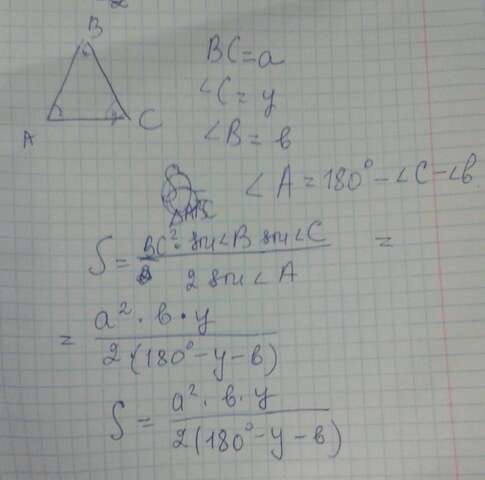 B
A
C
BC = a
∠C = y
∠B = в
∠A = 180° - ∠C - ∠в.
S = BC² · sin∠B sin∠C / 2 sin∠A =
= a² · в · y / 2(180° - y - в)
S = a² · в · y / 2(180° - y - в)